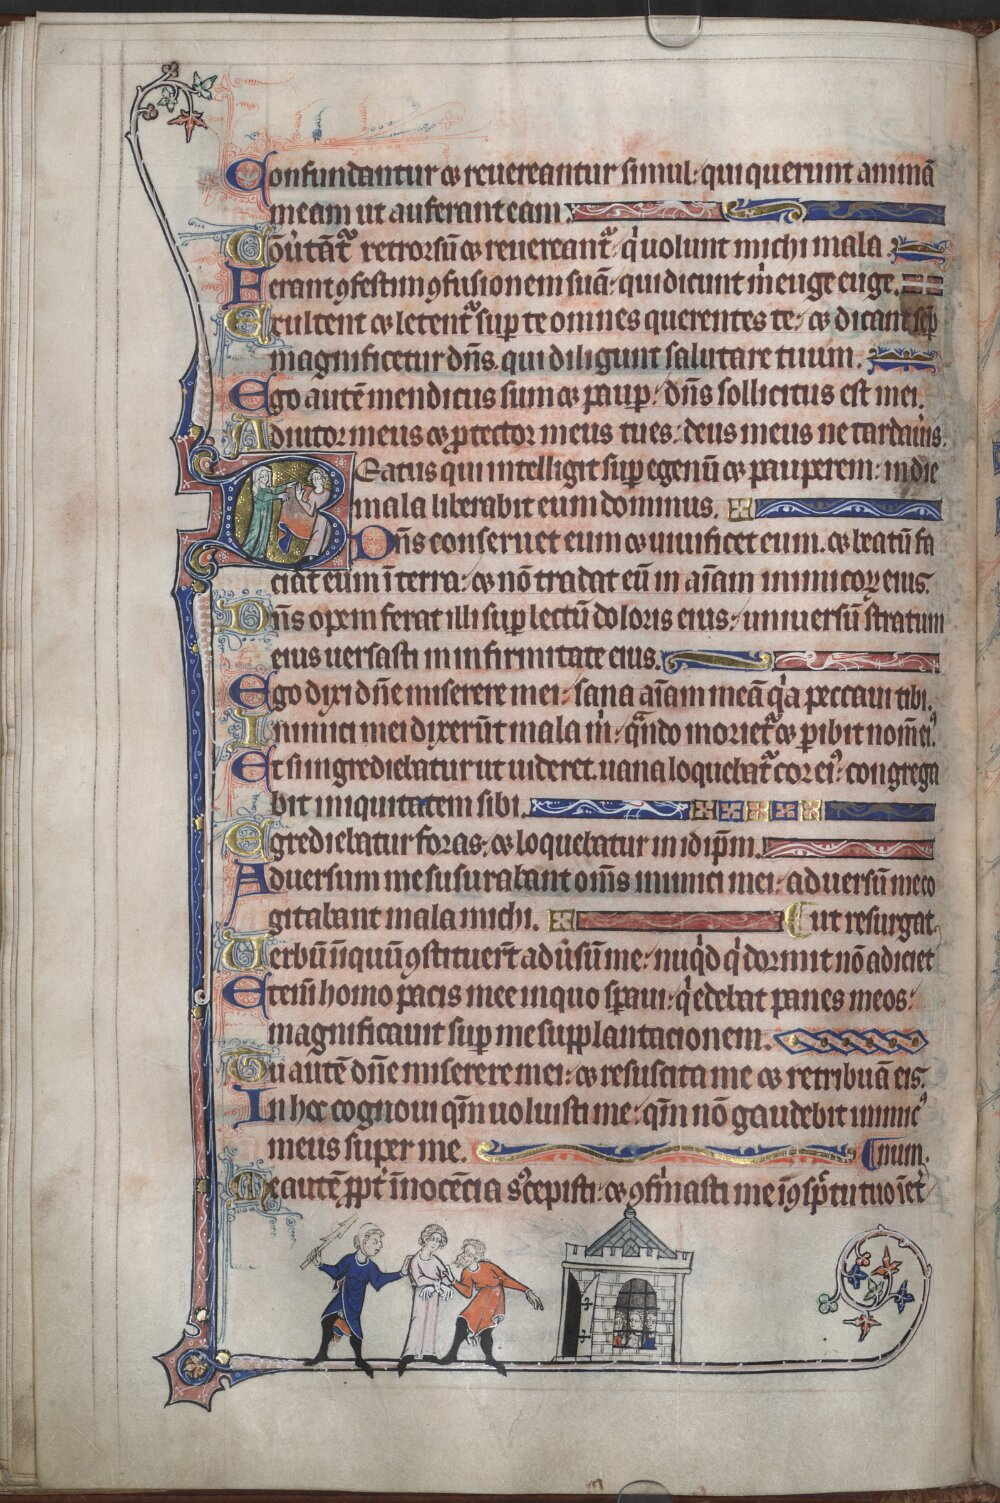 Confundantur ⁊ reuereantur simul: qui querunt animā
meam ut auferant eam.
Cōuˀtātʳ retrorsū ⁊ reuereantʳ: qͥ uolunt michi mala.
Ferant ꝯfestim ꝯfusionem suā: qui dicunt mͥ euge euge.
Exultent ⁊ letentʳ sup̱ te omnes querentes te: ⁊ dicant sēp̱
magnificetur dn̄s. qui diligunt salutare tuum.
Ego autē mendicus sum ⁊ paup̱: dn̄s sollicitus est mei.
Adiutor meus ⁊ ꝑtector meus tu es: deus meus ne tardau̾is.
Beatus qui intelligit sup̱ egenū ⁊ pauperem: in die
mala liberabit eum dominus.
Dn̄s conseruet eum ⁊ uiuificet eum. ⁊ beatū fa
ciat eum ī terra: ⁊ nō tradat eū in aīam inimicoꝝ eius.
Dn̄s opem ferat illi sup̱ lectū doloris eius: uniuersū stratum
eius uersasti in infirmitate eius.
Ego dixi dn̄e miserere mei: sana aīam meā qͥa peccaui tibi.
Inimici mei dixerūt mala mͥ: qn̄do morietʳ ⁊ ꝑibit nom̄ eiꝰ.
Et si ingrediebatur ut uideret. uana loquebatʳ cor eiꝰ: congrega
bit iniquitatem sibi.
Egrediebatur foras: ⁊ loquebatur in idip̄m.
Aduersum me susurabant om̄s inimici mei: aduersū me co
gitabant mala michi. ut resurgat.
Uerbū īiquū ꝯstituer̄t aduˀsū me: nūqͥd qͥ dormit nō adiciet
Eteni̅ homo pacis mee in quo sp̱aui: qͥ edebat panes meos:
magnificauit sup̱ me supplantacionem.
Tu autē dn̄e miserere mei: ⁊ resuscita me ⁊ retribuā eis.
In hoc cognoui qm̄ uoluisti me: qm̄ nō gaudebit inimicꝰ
meus super me. num.
Me autē ꝓpt̾ īnocēcia sꝰcepisti: ⁊ ꝯfͥmasti me ī ꝯsp̄ctu tuo ī et̾